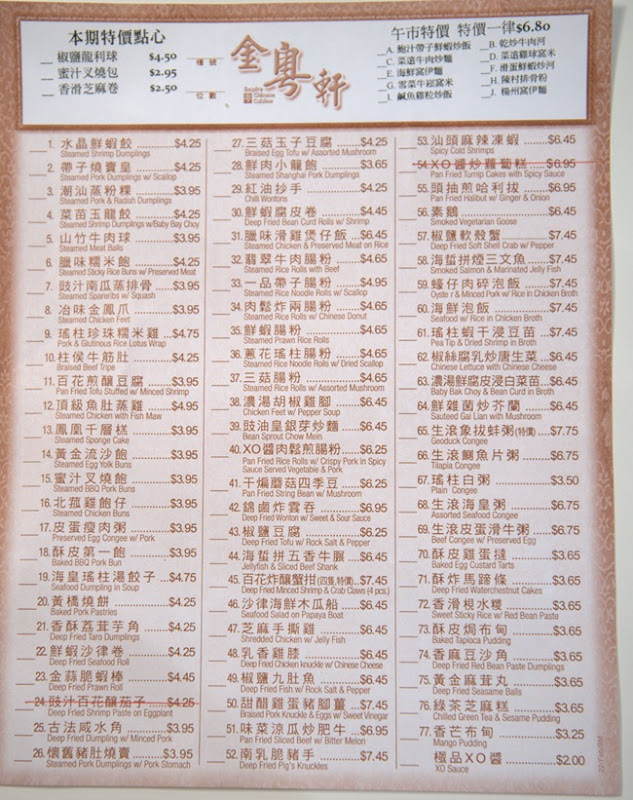 本期特價點心
椒鹽龍利球 $4.50
蜜汁叉燒包 $2.95
香滑芝麻卷 $2.50
檯號
位數
金粵軒
Empire
Chinese
Cuisine
午市特價 特價一律$6.80
A. 鮑汁帶子鮮蝦炒飯
B. 乾炒牛肉河
C. 菜遠牛肉炒麵
D. 菜遠雞球窩米
E. 海鮮窩伊麵
F. 滑蛋鮮蝦炒河
G. 雪菜牛崧窩米
H. 陳村排骨粉
I. 鹹魚雞粒炒飯
J. 楊州窩伊麵
1. 水晶鮮蝦餃 $4.25
Steamed Shrimp Dumplings
2. 帶子燒賣皇 $4.25
Steamed Pork Dumplings w/ Scallop
3. 潮汕蒸粉粿 $3.95
Steamed Pork & Radish Dumplings
4. 菜苗玉龍餃 $4.25
Steamed Shrimp Dumplings w/Baby Bay Choy
5. 山竹牛肉球 $3.95
Steamed Meat Balls
6. 臘味糯米飽 $4.25
Steamed Sticky Rice Buns w/ Preserved Meat
7. 豉汁南瓜蒸排骨 $3.95
Steamed Spareribs w/ Squash
8. 冶味金鳳爪 $3.95
Steamed Chicken Feet
9. 瑤柱珍珠糯米雞 $4.75
Pork & Glutinous Rice Lotus Wrap
10. 柱侯牛筋肚 $4.25
Braised Beef Tripe
11. 百花煎釀豆腐 $3.95
Pan Fried Tofu Stuffed w/ Minced Shrimp
12. 頂級魚肚蒸雞 $4.95
Steamed Chicken with Fish Maw
13. 鳳凰千層糕 $3.95
Steamed Sponge Cake
14. 黃金流沙飽 $3.95
Steamed Egg Yolk Buns
15. 蜜汁叉燒飽 $3.95
Steamed BBQ Pork Buns
16. 北菰雞飽仔 $3.95
Steamed Chicken Buns
17. 皮蛋瘦肉粥 $3.95
Preserved Egg Congee w/ Pork
18. 酥皮第一飽 $3.95
Baked BBQ Pork Bun
19. 海皇瑤柱湯餃子 $4.75
Seafood Dumpling in Soup
20. 黃橋燒餅 $4.25
Baked Pork Pastries
21. 香酥荔茸芋角 $4.25
Deep Fried Taro Dumplings
22. 鮮蝦沙律卷 $4.25
Deep Fried Seafood Roll
23. 金蒜脆蝦棒 $4.45
Deep Fried Prawn Roll
24. 豉汁百花釀茄子 $4.25
Deep Fried Shrimp Paste on Eggplant
25. 古法咸水角 $3.95
Deep Fried Dumpling w/ Minced Pork
26. 懷舊豬肚燒賣 $3.95
Steamed Pork Dumplings w/ Pork Stomach
27. 三菇玉子豆腐 $4.25
Braised Egg Tofu w/ Assorted Mushroom
28. 鮮肉小龍飽 $3.65
Steamed Shanghai Pork Dumplings
29. 紅油抄手 $4.25
Chili Wontons
30. 鮮蝦腐皮卷 $4.45
Deep Fried Bean Curd Rolls w/ Shrimp
31. 臘味滑雞煲仔飯 $6.45
Steamed Chicken & Preserved Meat on Rice
32. 翡翠牛肉腸粉 $4.65
Steamed Rice Rolls with Beef
33. 一品帶子腸粉 $4.95
Steamed Rice Noodle Rolls w/ Scallop
34. 肉鬆炸兩腸粉 $4.65
Steamed Rice Rolls w/ Chinese Donut
35. 鮮蝦腸粉 $4.65
Steamed Prawn Rice Rolls
36. 蔥花瑤柱腸粉 $4.65
Steamed Rice Noodle Rolls w/ Dried Scallop
37. 三菇腸粉 $4.65
Steamed Rice Rolls w/ Assorted Mushroom
38. 濃湯胡椒雞腳 $6.45
Chicken Feet w/ Pepper Soup
39. 豉油皇銀芽炒麵 $6.45
Bean Sprout Chow Mein
40. XO醬肉鬆煎腸粉 $6.25
Pan Fried Rice Rolls w/ Crispy Pork in Spicy
Sauce Served Vegetable & Pork
41. 干煸蘑菇四季豆 $6.25
Pan Fried String Bean w/ Mushroom
42. 錦鹵炸雲吞 $6.95
Deep Fried Wonton w/ Sweet & Sour Sauce
43. 椒鹽豆腐 $6.25
Deep Fried Tofu w/ Rock Salt & Pepper
44. 海蜇拼五香牛腱 $6.45
Jellyfish & Sliced Beef Shank
45. 百花炸釀蟹拑(四隻,特價) $7.45
Deep Fried Minced Shrimp & Crab Claws (4 pcs.)
46. 沙律海鮮木瓜船 $6.45
Seafood Salad on Papaya Boat
47. 芝麻手撕雞 $6.45
Shredded Chicken w/ Jelly Fish
48. 乳香雞膝 $6.45
Deep Fried Chicken knuckle w/ Chinese Cheese
49. 椒鹽九肚魚 $6.45
Deep Fried Fish w/ Rock Salt & Pepper
50. 甜醋雞蛋豬腳薑 $7.45
Braised Pork Knuckle & Eggs w/ Sweet Vinegar
51. 味菜涼瓜炒肥牛 $6.95
Pan Fried Sliced Beef w/ Bitter Melon
52. 南乳脆豬手 $7.45
Deep Fried Pig's Knuckles
53. 汕頭麻辣凍蝦 $6.45
Spicy Cold Shrimps
54. XO醬炒蘿蔔糕 $6.95
Pan Fried Turnip Cakes with Spicy Sauce
55. 頭抽煎哈利拔 $6.95
Pan Fried Halibut w/ Ginger & Onion
56. 素鵝 $6.45
Smoked Vegetarian Goose
57. 椒鹽軟殼蟹 $7.45
Deep Fried Soft Shell Crab w/ Pepper
58. 海蜇拼煙三文魚 $7.45
Smoked Salmon & Marinated Jelly Fish
59. 蠔仔肉碎泡飯 $7.45
Oyster & Minced Pork w/ Rice in Chicken Broth
60. 海鮮泡飯 $7.45
Seafood w/ Rice in Chicken Broth
61. 瑤柱蝦干浸豆苗 $7.45
Pea Tip & Dried Shrimp in Broth
62. 椒絲腐乳炒唐生菜 $6.45
Chinese Lettuce with Chinese Cheese
63. 濃湯鮮腐皮浸白菜苗 $6.45
Baby Bak Choy & Bean Curd in Broth
64. 鮮雜菌炒芥蘭 $6.45
Sauteed Gai Lan with Mushroom
65. 生滾象拔蚌粥(特價) $7.75
Geoduck Congee
66. 生滾鯽魚片粥 $6.75
Tilapia Congee
67. 瑤柱白粥 $3.50
Plain Congee
68. 生滾海皇粥 $6.75
Assorted Seafood Congee
69. 生滾皮蛋滑牛粥 $6.75
Beef Congee w/ Preserved Egg
70. 酥皮雞蛋撻 $3.65
Baked Egg Custard Tarts
71. 酥炸馬蹄條 $3.65
Deep Fried Waterchestnut Cakes
72. 香滑梘水糭 $3.65
Sweet Sticky Rice w/ Red Bean Paste
73. 酥皮焗布甸 $3.65
Baked Tapioca Pudding
74. 香麻豆沙角 $3.65
Deep Fried Red Bean Paste Dumplings
75. 黃金麻茸丸 $3.65
Deep Fried Seasame Balls
76. 綠茶芝麻糕 $3.65
Chilled Green Tea & Sesame Pudding
77. 香芒布甸 $3.25
Mango Pudding
極品XO醬 $2.00
XO Sauce